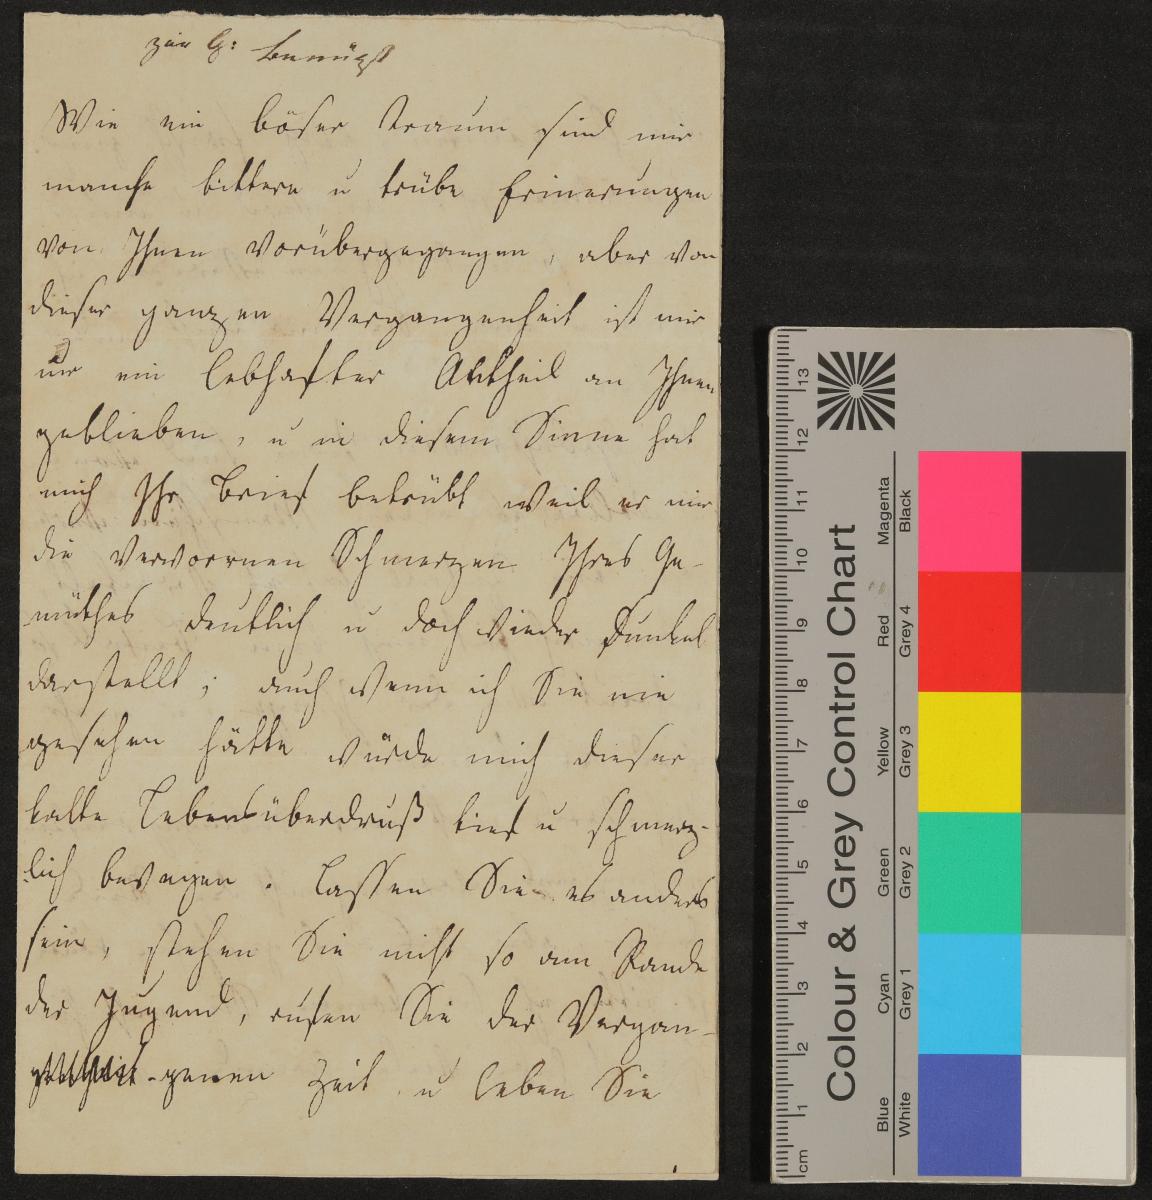 zur G: benüzt
Wie ein böser Traum sind mir
manche bittere u trübe Erinerungen
von Ihnen vorübergegangen, aber von
dieser ganzen Vergangenheit ist mir
nur ein lebhafter Antheil an Ihnen
geblieben, u in diesem Sinne hat
mich Ihr Brief betrübt weil er mir
die verworrnen Schmerzen Ihres Ge-
müthes deutlich u doch wieder dunkel
darstellt; auch wenn ich Sie nie
gesehen hätte würde mich dieser
kalte Lebensüberdruß tief u schmerz-
lich bewegen. Lassen Sie es anders
sein, stehen Sie nicht so am Rande
der Jugend, rufen Sie der Vergan-
genen Zeit u leben Sie
Colour & Grey Control Chart
Blue Cyan Green Yellow Red Magenta
White Grey 1 Grey 2 Grey 3 Grey 4 Black
cm 1 2 3 4 5 6 7 8 9 10 11 12 13